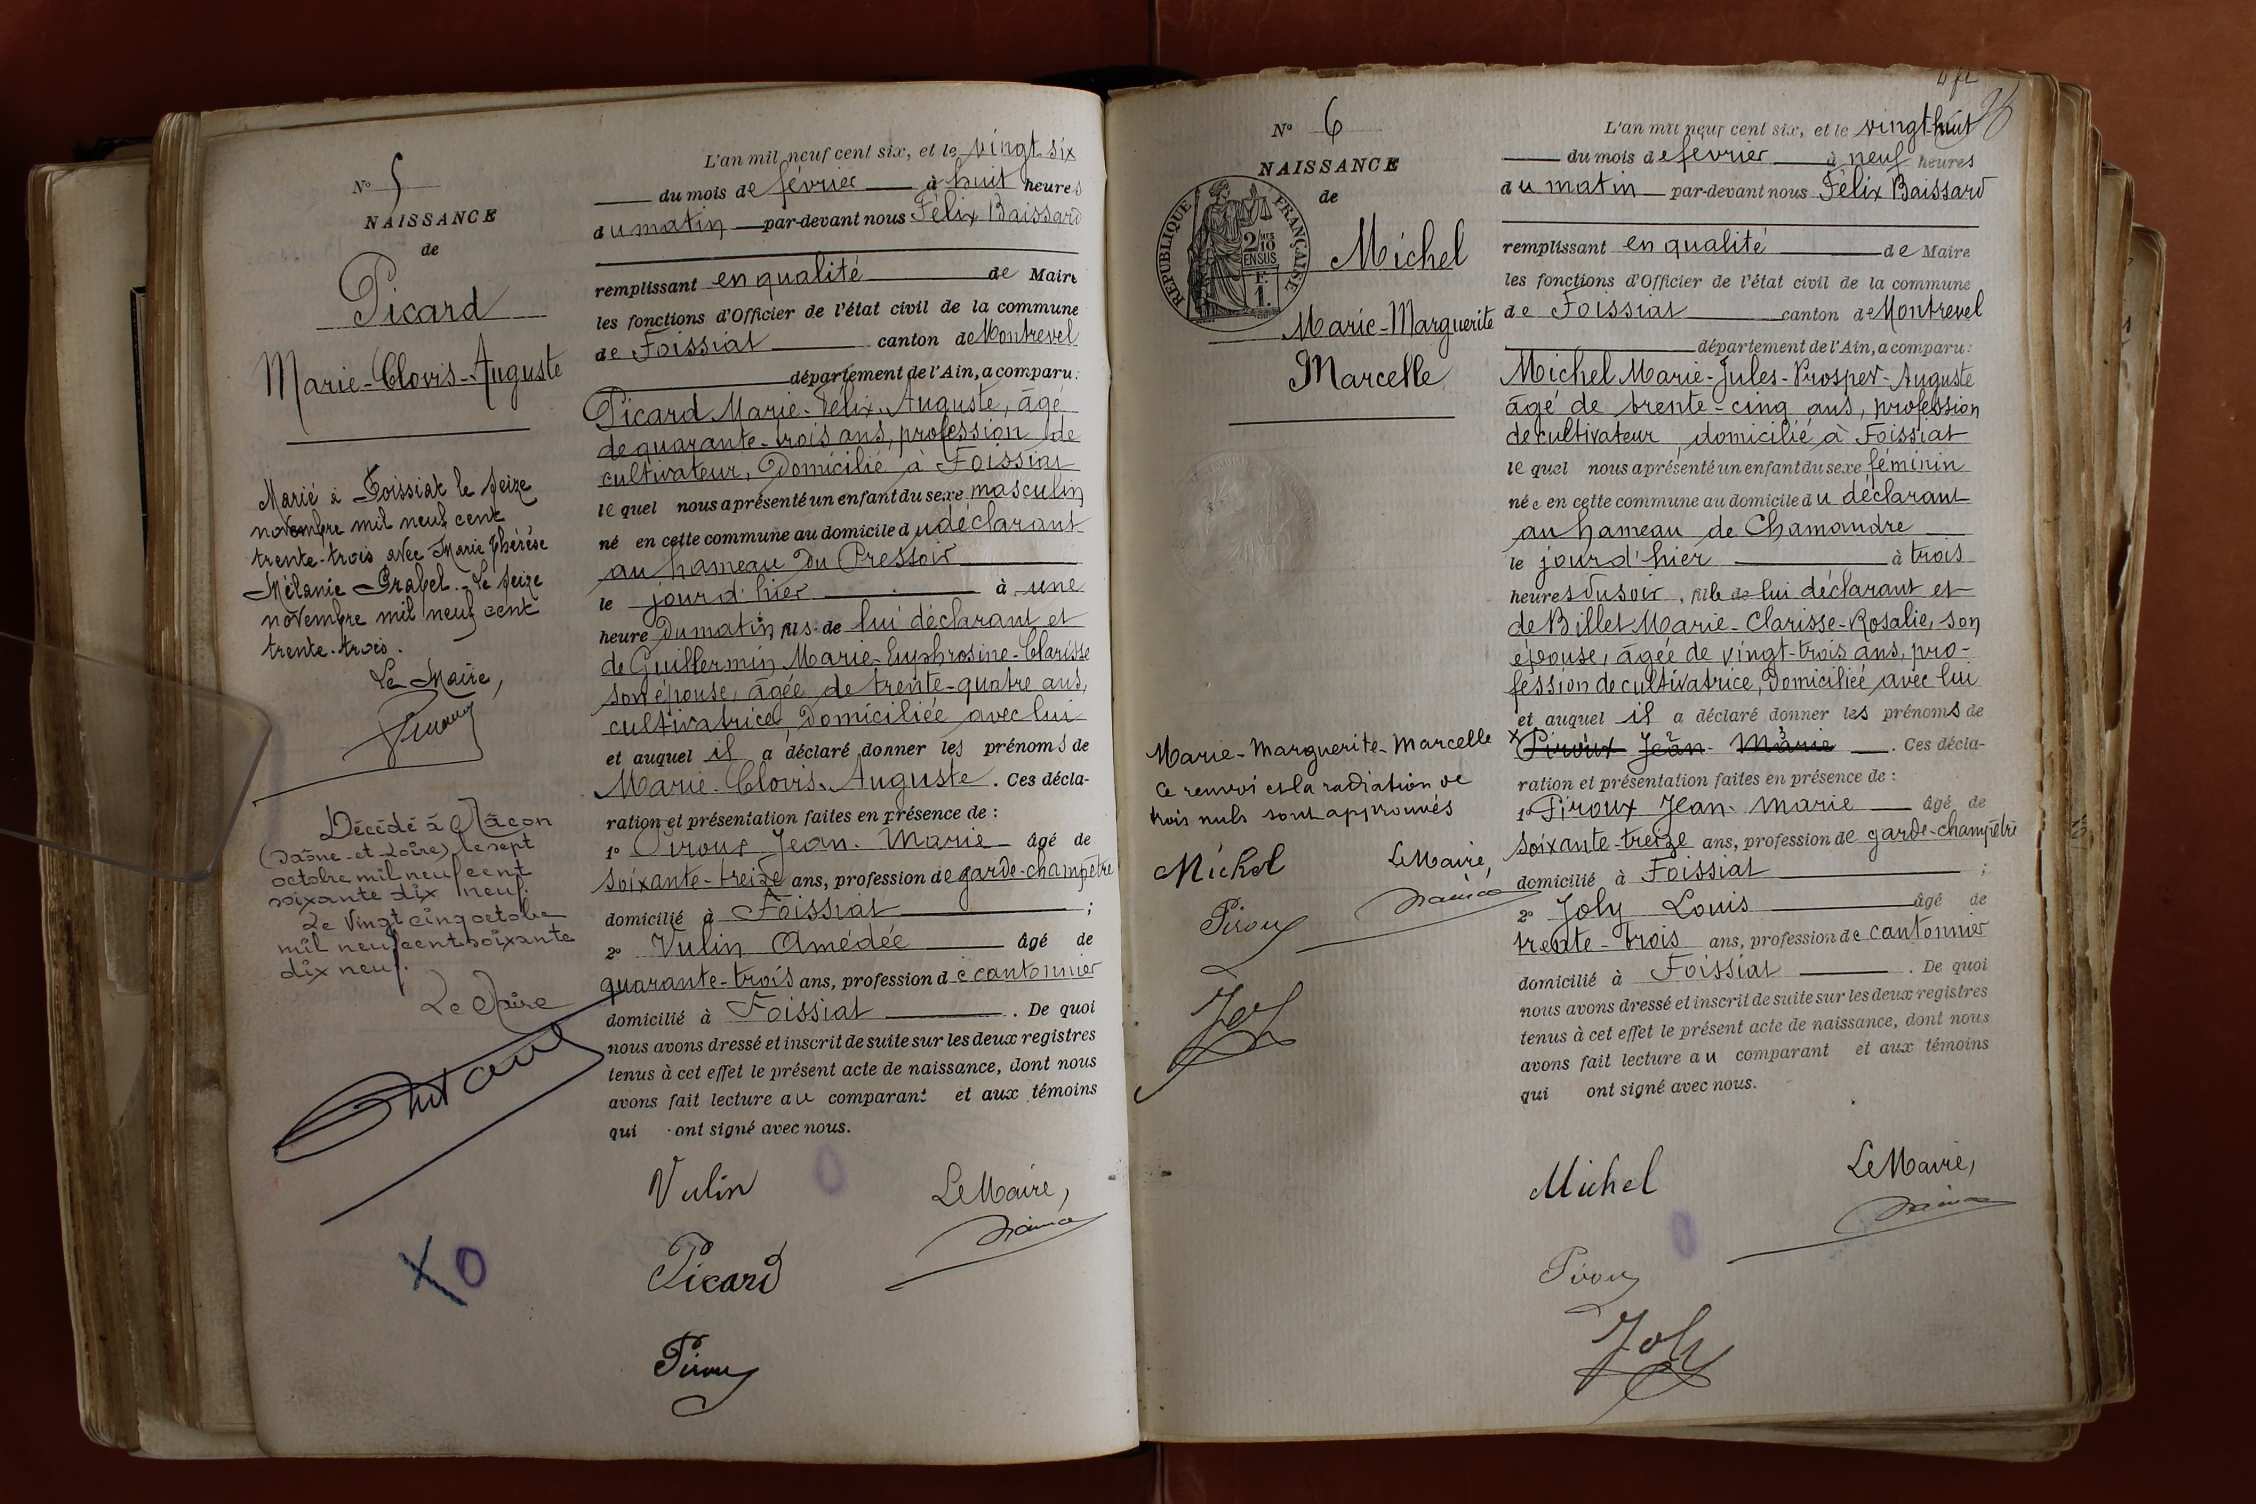 N° 5
NAISSANCE
de
Picard
Marie-Clovis-Auguste
Marié à Foissiat le seize
novembre mil neuf cent
trente-trois avec Marie Thérèse
Mélanie Grabel. Le seize
novembre mil neuf cent
trente-trois.
Le Maire,
Décédé à Mâcon
(Saône-et-Loire) le sept
octobre mil neuf cent
soixante dix neuf.
Le Vingt cinq octobre
mil neuf cent soixante
dix neuf.
Le Maire
X O
L'an mil neuf cent six, et le vingt six
du mois de février à huit heures
du matin par-devant nous Félix Baissard
remplissant en qualité de Maire
les fonctions d'Officier de l'état civil de la commune
de Foissiat canton de Montrevel
département de l'Ain, a comparu:
Picard Marie-Félix-Auguste, âgé
de quarante-trois ans, profession de
cultivateur, Domicilié à Foissiat
lequel nous a présenté un enfant du sexe masculin
né en cette commune au domicile du déclarant
au hameau Du Pressoir
le jour d'hier à une
heure Du matin fils de lui déclarant et
de Guillermin Marie-Euphrosine-Clarisse
son épouse, âgée de trente-quatre ans,
cultivatrice, Domiciliée avec lui
et auquel il a déclaré donner les prénoms de
Marie-Clovis-Auguste. Ces décla-
ration et présentation faites en présence de :
1° Piroux Jean-Marie âgé de
soixante-treize ans, profession de garde-champêtre
domicilié à Foissiat ;
2° Vulin Amédée âgé de
quarante-trois ans, profession de cantonnier
domicilié à Foissiat . De quoi
nous avons dressé et inscrit de suite sur les deux registres
tenus à cet effet le présent acte de naissance, dont nous
avons fait lecture au comparant et aux témoins
qui ont signé avec nous.
Vulin
Le Maire,
Picard
Piroux
N° 6
NAISSANCE
de
RÉPUBLIQUE FRANÇAISE
2/10
EN SUS
F.
1.
Michel
Marie-Marguerite
Marcelle
Marie-Marguerite-Marcelle
Ce renvoi et la radiation de
trois nuls sont approuvés
Michel
Le Maire,
Piroux
Joly
L'an mil neuf cent six, et le vingt-huit
du mois de février à neuf heures
du matin par-devant nous Félix Baissard
remplissant en qualité de Maire
les fonctions d'Officier de l'état civil de la commune
de Foissiat canton de Montrevel
département de l'Ain, a comparu:
Michel Marie-Jules-Prosper-Auguste
âgé de trente-cinq ans, profession
de cultivateur domicilié à Foissiat
lequel nous a présenté un enfant du sexe féminin
née en cette commune au domicile du déclarant
au hameau de Chamandre
le jour d'hier à trois
heures du soir, fille de lui déclarant et
de Billet Marie-Clarisse-Rosalie, son
épouse, âgée de vingt-trois ans, pro-
fession de cultivatrice, Domiciliée avec lui
et auquel il a déclaré donner les prénoms de
x Piroux Jean-Marie . Ces décla-
ration et présentation faites en présence de :
1° Piroux Jean-Marie âgé de
soixante-treize ans, profession de garde-champêtre
domicilié à Foissiat ;
2° Joly Louis âgé de
trente-trois ans, profession de cantonnier
domicilié à Foissiat . De quoi
nous avons dressé et inscrit de suite sur les deux registres
tenus à cet effet le présent acte de naissance, dont nous
avons fait lecture au comparant et aux témoins
qui ont signé avec nous.
Michel
Le Maire,
Piroux
Joly